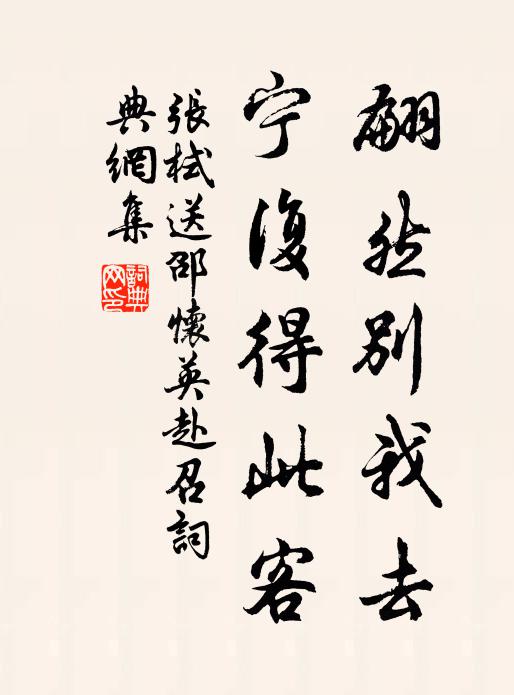 翩然別我去
宁復得此客
張栻送邵懷英赴召詞
典網集
詞典
网印